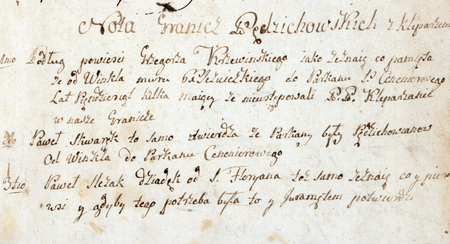 Nota Granicz Pędzichowskich z Kleparzem
1mo Podług powieści Grzegorza Krzewinskiego jako zeznaię co pamięta
że od Winkla muru do Parkanu P Cenzorowego
Lat Piędziesiąt kilka maiący że nieustępowali P.P. Kleparzanie
w nasze Granicze
2do Paweł Skwaryk to samo ztwierdza że Parkany były Pędzichowianow
Od Winkla do Parkanu Cenzorowego
3tio Paweł Slezak dziadek od S. Floryana toż samo zeznaię co y pier
wsi y gdyby tego potrzeba była to y Juramętem potwierdzi